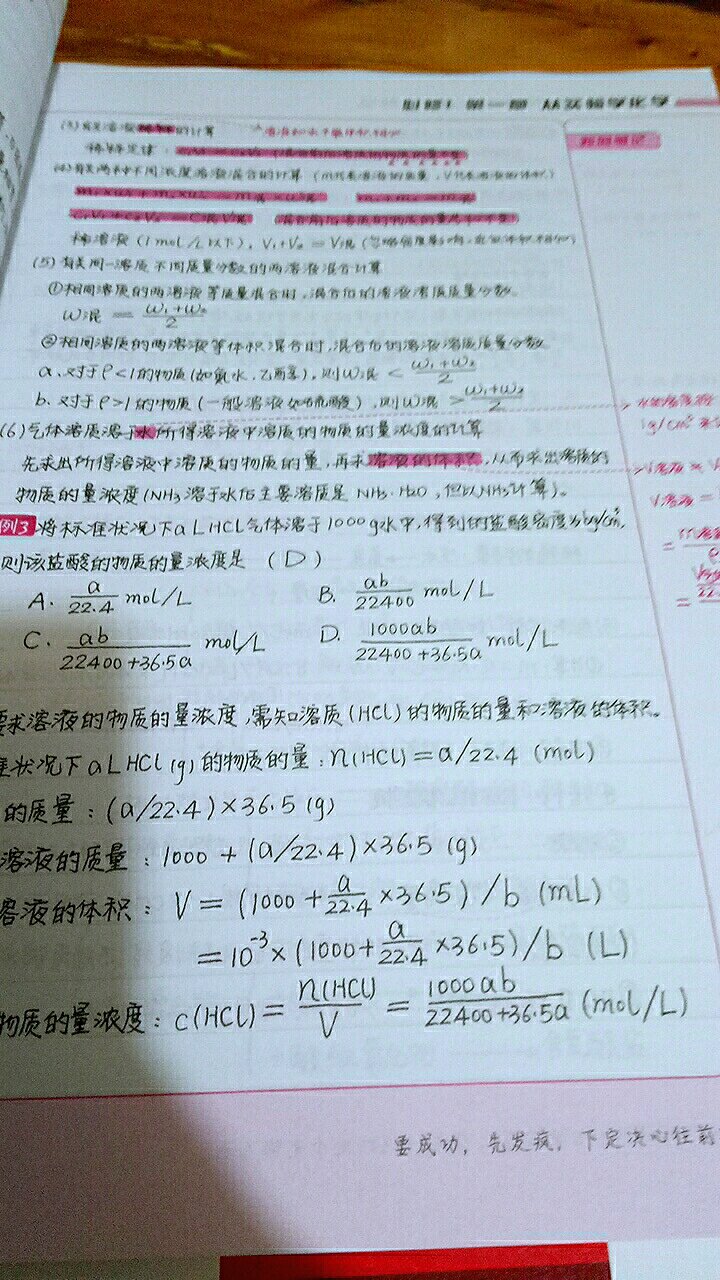 必修1 第一章 从实验学化学
(3)有关溶液稀释的计算
稀释定律：
(4)有关两种不同浓度溶液混合的计算
混合前后溶质的物质的量总和不变
稀溶液(1mol/L以下)，V₁+V₂=V混
(5)有关同一溶质不同质量分数的两溶液混合计算
①相同溶质的两溶液等质量混合时，混合后的溶液溶质质量分数
ω混 = (ω₁+ω₂)/2
②相同溶质的两溶液等体积混合时，混合后的溶液溶质质量分数
a、对于ρ<1的物质(如氨水、乙醇)，则ω混 < (ω₁+ω₂)/2
b、对于ρ>1的物质(一般溶液如硫酸)，则ω混 > (ω₁+ω₂)/2
水的密度按
(6)气体溶质溶于水所得溶液中溶质的物质的量浓度的计算
1g/cm³
先求出所得溶液中溶质的物质的量，再求溶液的体积，从而求出溶质的
物质的量浓度(NH₃溶于水后主要溶质是NH₃·H₂O，但以NH₃计算)。
V溶液 =
例3 将标准状况下a L HCl气体溶于1000g水中，得到的盐酸密度为bg/cm³，
则该盐酸的物质的量浓度是 (D)
A. a/22.4 mol/L B. ab/22400 mol/L
C. ab/(22400+36.5a) mol/L D. 1000ab/(22400+36.5a) mol/L
要求溶液的物质的量浓度，需知溶质(HCl)的物质的量和溶液的体积。
状况下aLHCl(g)的物质的量：n(HCl)=a/22.4 (mol)
的质量：(a/22.4)×36.5(g)
溶液的质量：1000+(a/22.4)×36.5(g)
溶液的体积：V=(1000+a/22.4×36.5)/b (mL)
=10⁻³×(1000+a/22.4×36.5)/b (L)
物质的量浓度：c(HCl)=n(HCl)/V=1000ab/(22400+36.5a) (mol/L)
要成功，先发疯，下定决心往前